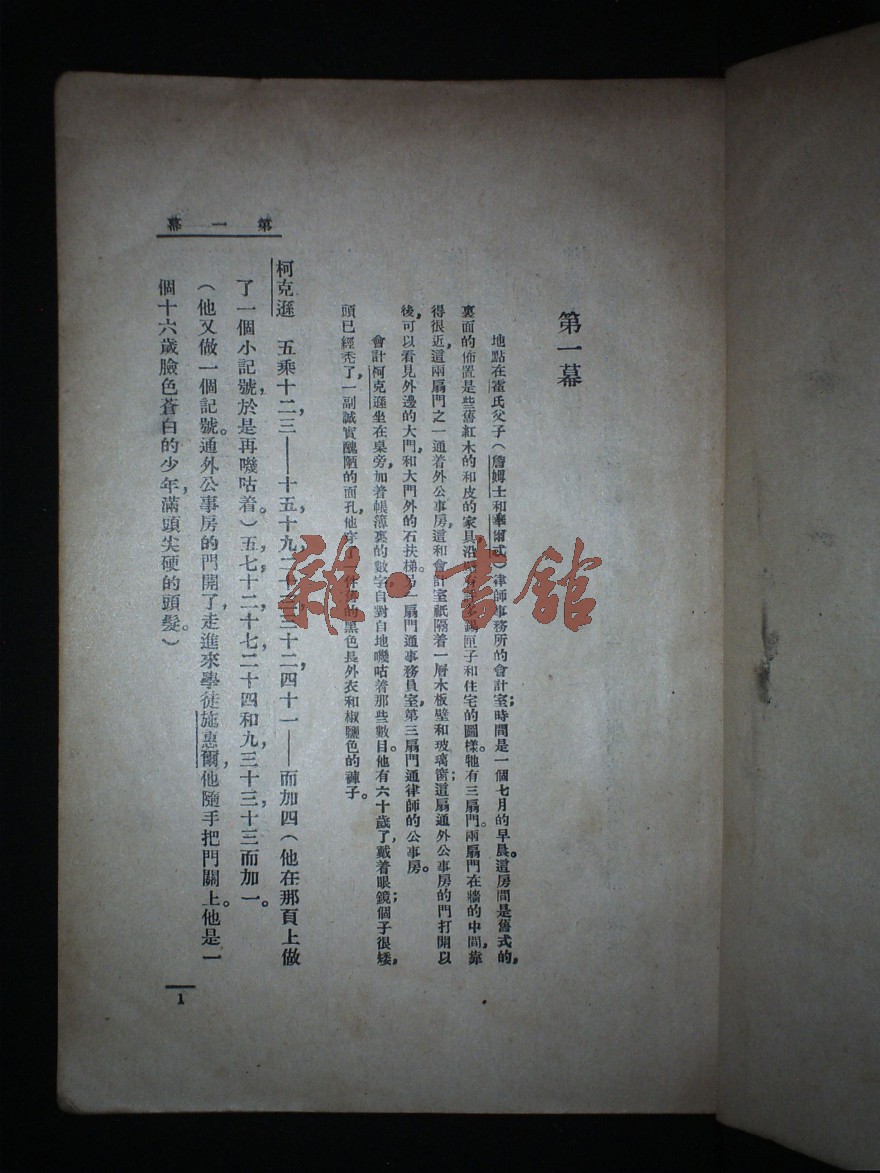 第一幕
第一幕
地點在霍氏父子（詹姆士和華爾忒）律師事務所的會計室；時間是一個七月的早晨。這房間是舊式的，
裏面的佈置是些舊紅木的和皮的家具沿 錫匣子和住宅的圖樣。牠有三扇門。兩扇門在牆的中間，靠
得很近，這兩扇門之一通着外公事房，這和會計室祇隔着一層木板壁和玻璃窗；這扇通外公事房的門打開以
後，可以看見外邊的大門和大門外的石扶梯。另一扇門通事務員室，第三扇門通律師的公事房。
會計柯克遜坐在桌旁，加着帳簿裏的數字，自對自地嘰咕着那些數目。他有六十歲了，戴着眼鏡；個子很矮，
頭已經禿了，一副誠實醜陋的面孔，他穿了一件舊的黑色長外衣和椒鹽色的褲子。
柯克遜　五乘十二，三——十五，十九，二十三，三十二，四十一——而加四（他在那頁上做
了一個小記號，於是再嘰咕着。）五，七，十二，十七，二十四和九，三十三，十三而加一。
（他又做一個記號。通外公事房的門開了，走進來學徒施惠爾，他隨手把門關上。他是一
個十六歲臉色蒼白的少年，滿頭尖硬的頭髮。）
1
雜·書館